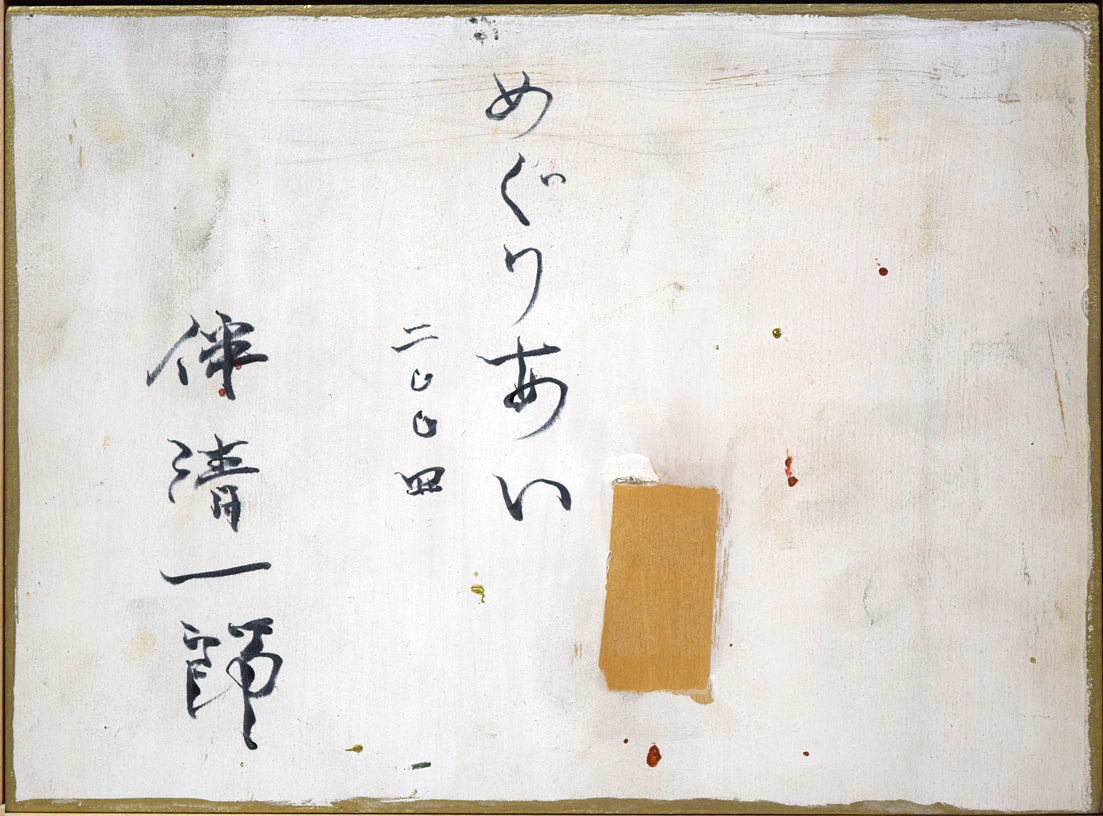 めぐりあい
二〇〇四
伴清一郎